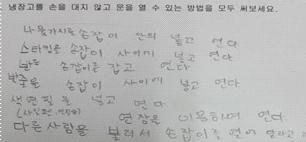 냉장고를 손을 대지 않고 문을 열 수 있는 방법을 모두 써보세요.
나뭇가지를 손잡이 안에 넣고 연다
스타킹을 손잡이 사이에 넣고 연다
발로 손잡이를 잡고 연다
밧줄을 손잡이 사이에 넣고 연다
색연필을 넣고 연다
연장을 이용하여 연다
다른 사람을 불러서 손잡이를 열어 달라고